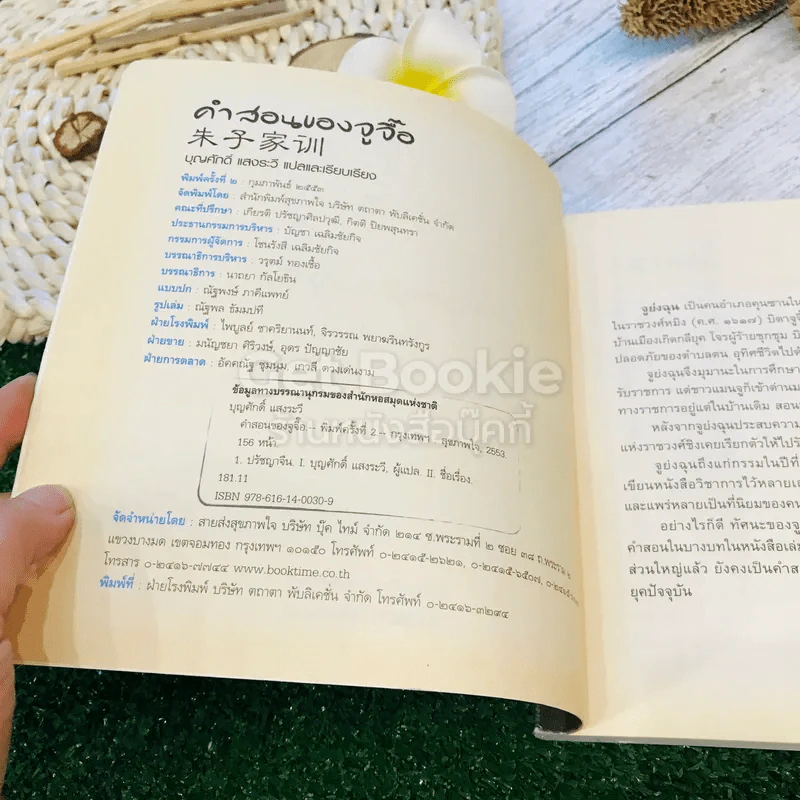 คำสอนของจูจื๊อ
朱子家训
บุญศักดิ์ แสงระวี แปลและเรียบเรียง
พิมพ์ครั้งที่ ๒ : กุมภาพันธ์ ๒๕๕๓
จัดพิมพ์โดย : สำนักพิมพ์สุขภาพใจ บริษัท ตถาตา พับลิเคชั่น จำกัด
คณะที่ปรึกษา : เกียรติ ปรัชญาศิลปวุฒิ, กิตติ ปิยพสุนทรา
ประธานกรรมการบริหาร : บัญชา เฉลิมชัยกิจ
กรรมการผู้จัดการ : โชนรังสี เฉลิมชัยกิจ
บรรณาธิการบริหาร : วรุตม์ ทองเชื้อ
บรรณาธิการ : นาถยา กัลโยธิน
แบบปก : ณัฐพงษ์ ภาคีแพทย์
รูปเล่ม : ณัฐพล ธัมมปที
ฝ่ายโรงพิมพ์ : ไพบูลย์ ชาคริยานนท์, จิรวรรณ พยาฆรินทรังกูร
ฝ่ายขาย : มนัญชยา ศิริวงษ์, อุดร ปัญญาชัย
ฝ่ายการตลาด : อัคคณัฐ ชุมนุม, เกวลี ดวงเด่นงาม
ข้อมูลทางบรรณานุกรมของสำนักหอสมุดแห่งชาติ
บุญศักดิ์ แสงระวี
คำสอนของจูจื๊อ.-- พิมพ์ครั้งที่ 2.-- กรุงเทพฯ : สุขภาพใจ, 2553.
156 หน้า.
1. ปรัชญาจีน. I. บุญศักดิ์ แสงระวี, ผู้แปล. II. ชื่อเรื่อง.
181.11
ISBN 978-616-14-0030-9
จัดจำหน่ายโดย : สายส่งสุขภาพใจ บริษัท บุ๊ค ไทม์ จำกัด ๒๑๔ ซ.พระรามที่ ๒ ซอย ๓๘ ถ.พระราม ๒
แขวงบางมด เขตจอมทอง กรุงเทพฯ ๑๐๑๕๐ โทรศัพท์ ๐-๒๔๑๕-๒๖๒๑, ๐-๒๔๑๕-๖๕๐๗,
โทรสาร ๐-๒๔๑๖-๗๗๔๔ www.booktime.co.th
พิมพ์ที่ : ฝ่ายโรงพิมพ์ บริษัท ตถาตา พับลิเคชั่น จำกัด โทรศัพท์ ๐-๒๔๑๖-๓๒๙๔
Get Bookie
ร้านหนังสือบุ๊คกี้
จูย่งฉุน เป็นคนอำเภอคุนซานใน
ในราชวงศ์หมิง (ค.ศ. ๑๖๑๗) บิดาจู
บ้านเมืองเกิดกลียุค โจรผู้ร้ายชุกชุม
ปลอดภัยของตำบลตน อุทิศชีวิตไป
จูย่งฉุนจึงมุมานะในการศึกษา
รับราชการ แต่ชาวแมนจูก็เข้า
ทางราชการอยู่แต่ในบ้านเดิม สอน
หลังจากจูย่งฉุนประสบความ
แห่งราชวงศ์ชิงเคยเรียกตัวให้ไป
จูย่งฉุนถึงแก่กรรมในปีที่
เขียนหนังสือวิชาการไว้หลาย
และแพร่หลายเป็นที่นิยมของคน
อย่างไรก็ดี ทัศนะของจู
คำสอนในบางบทในหนังสือเล่ม
ส่วนใหญ่แล้ว ยังคงเป็นคำส
ยุคปัจจุบัน